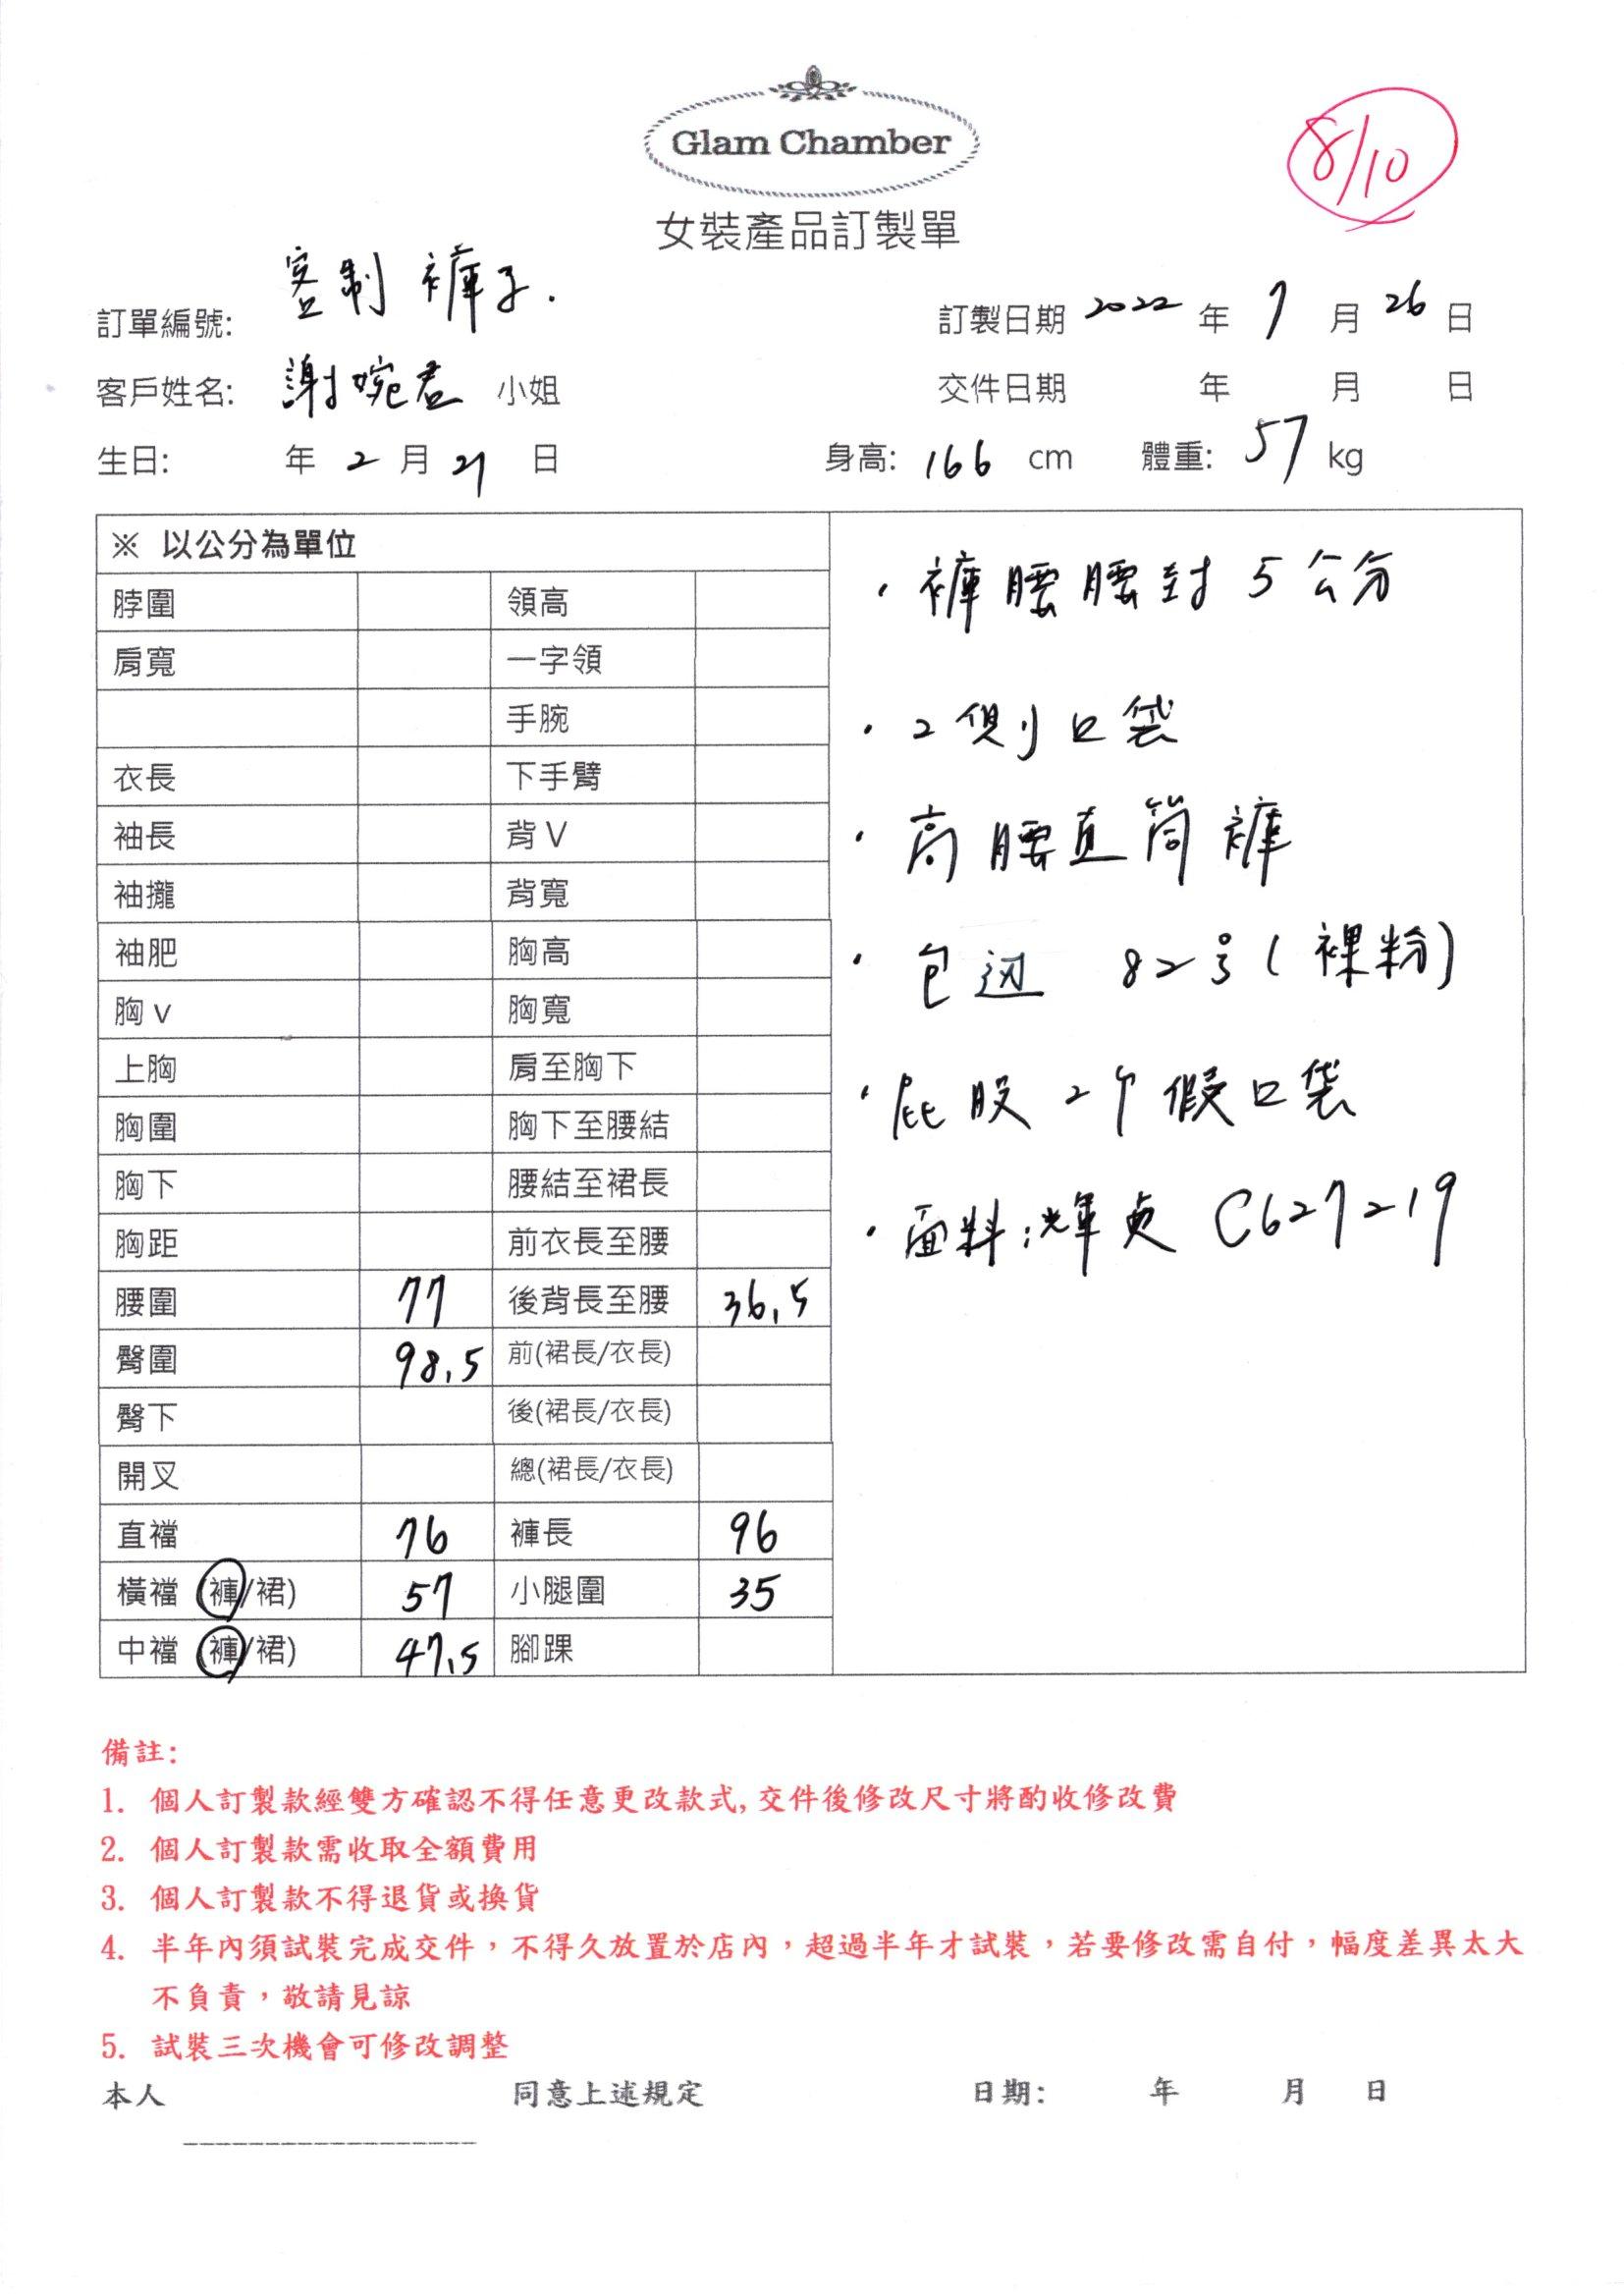 Glam Chamber
8/10
女裝產品訂製單
訂單編號: 客制褲子.
訂製日期 2022 年 7 月 26 日
客戶姓名: 謝婉君 小姐
交件日期 年 月 日
生日: 年 2 月 21 日
身高: 166 cm 體重: 57 kg
※ 以公分為單位
脖圍 領高
肩寬 一字領
手腕
衣長 下手臂
袖長 背V
袖攏 背寬
袖肥 胸高
胸v 胸寬
上胸 肩至胸下
胸圍 胸下至腰結
胸下 腰結至裙長
胸距 前衣長至腰
腰圍 77 後背長至腰 36.5
臀圍 98.5 前(裙長/衣長)
臀下 後(裙長/衣長)
開叉 總(裙長/衣長)
直襠 76 褲長 96
橫襠 (褲/裙) 57 小腿圍 35
中襠 (褲/裙) 47.5 腳踝
・褲腰腰封5公分
・2側口袋
・高腰直筒褲
・包边 82号(裸粉)
・屁股2个假口袋
・面料:輝貞 C627219
備註:
1. 個人訂製款經雙方確認不得任意更改款式,交件後修改尺寸將酌收修改費
2. 個人訂製款需收取全額費用
3. 個人訂製款不得退貨或換貨
4. 半年內須試裝完成交件，不得久放置於店內，超過半年才試裝，若要修改需自付，幅度差異太大
不負責，敬請見諒
5. 試裝三次機會可修改調整
本人 同意上述規定 日期: 年 月 日